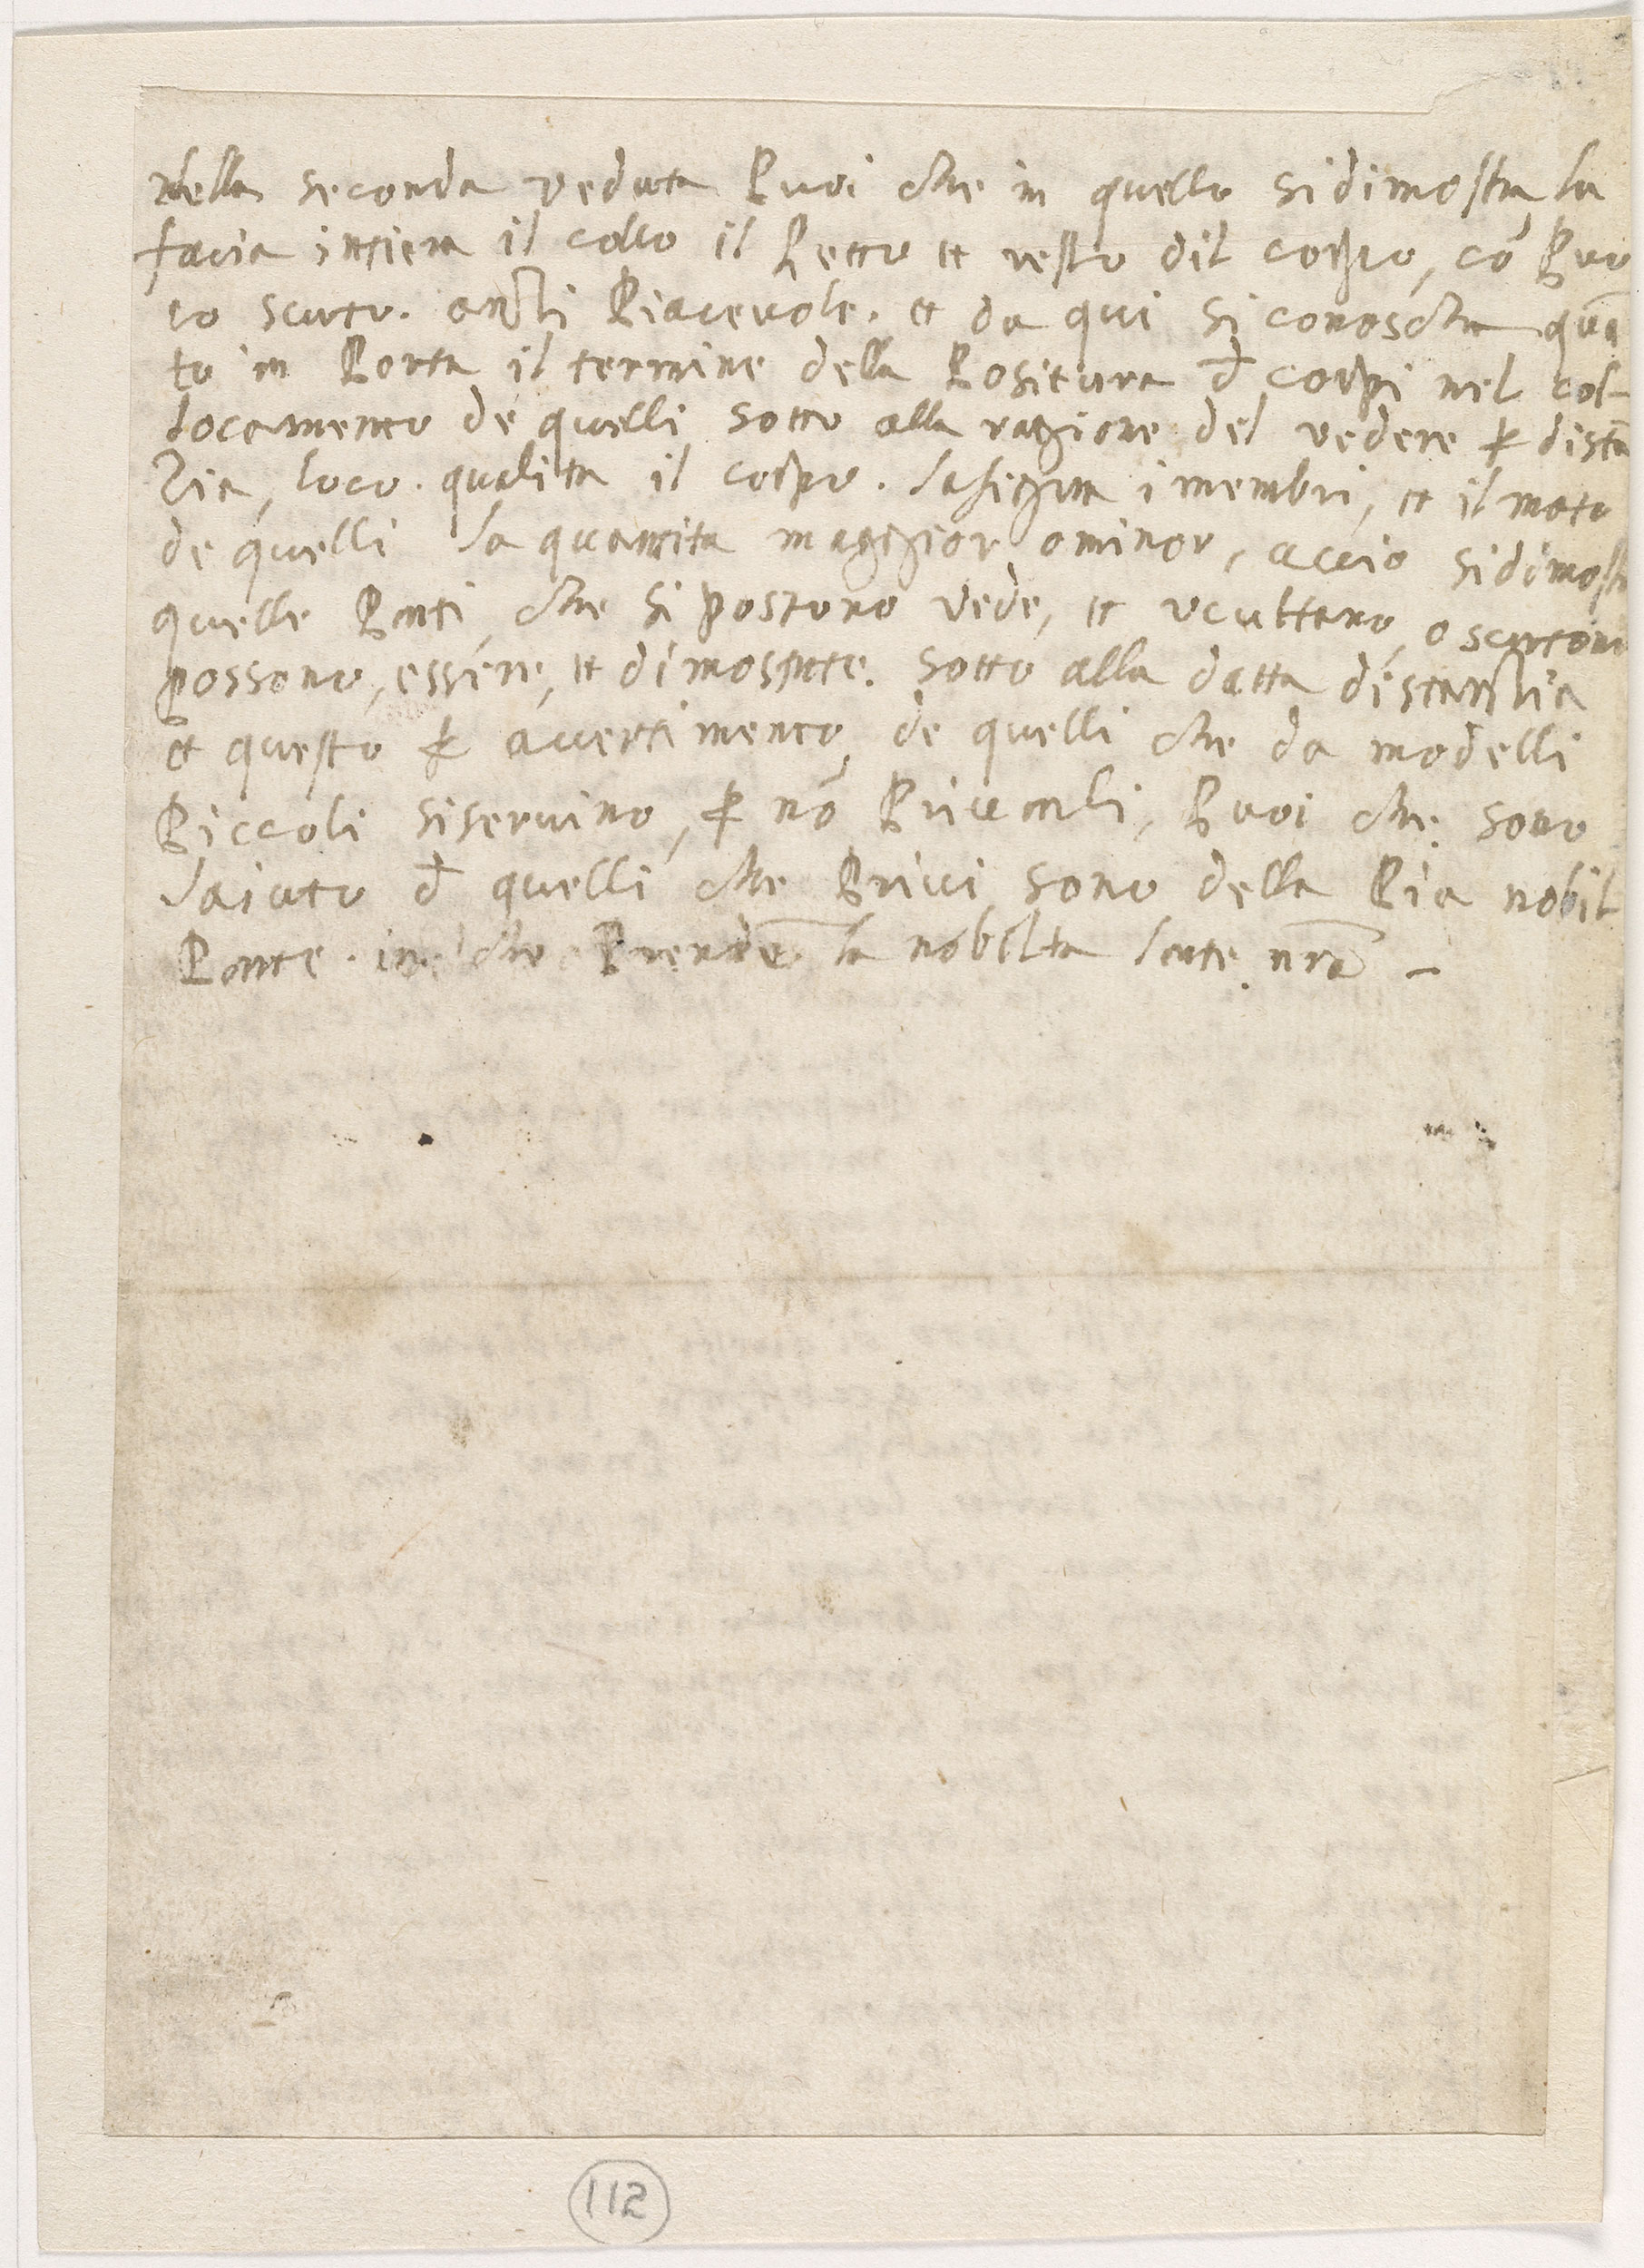 nella seconda veduta Puoi che in quello sidimostra, la
facia intiera il collo il Petto et resto dil corpo, cõ Puo
co scuto. anzi Piacevole. et da qui si conoscha quã
to in Porta il termine della Positura đ corpi nel col-
locamento de quelli sotto alla ragione del vedere ꝑ distã
Zia, loco. qualita il corpo. lafigura i membri, et il moto
de quelli la quantita maggior ominor, accio sidimost
quelle Parti, che si possono vede, et ocultano, o scurtono
possono, essere, et dimostrate. sotto alla datta distanzia
et questo ꝑ avertimento, de quelli che da modelli
Piccoli siservino, ꝑ nõ Pri Puoi che sono
laiuto đ quelli che Privi sono della Pia nobil
Parte. in che Prende la nobilta larte. nrã -
112